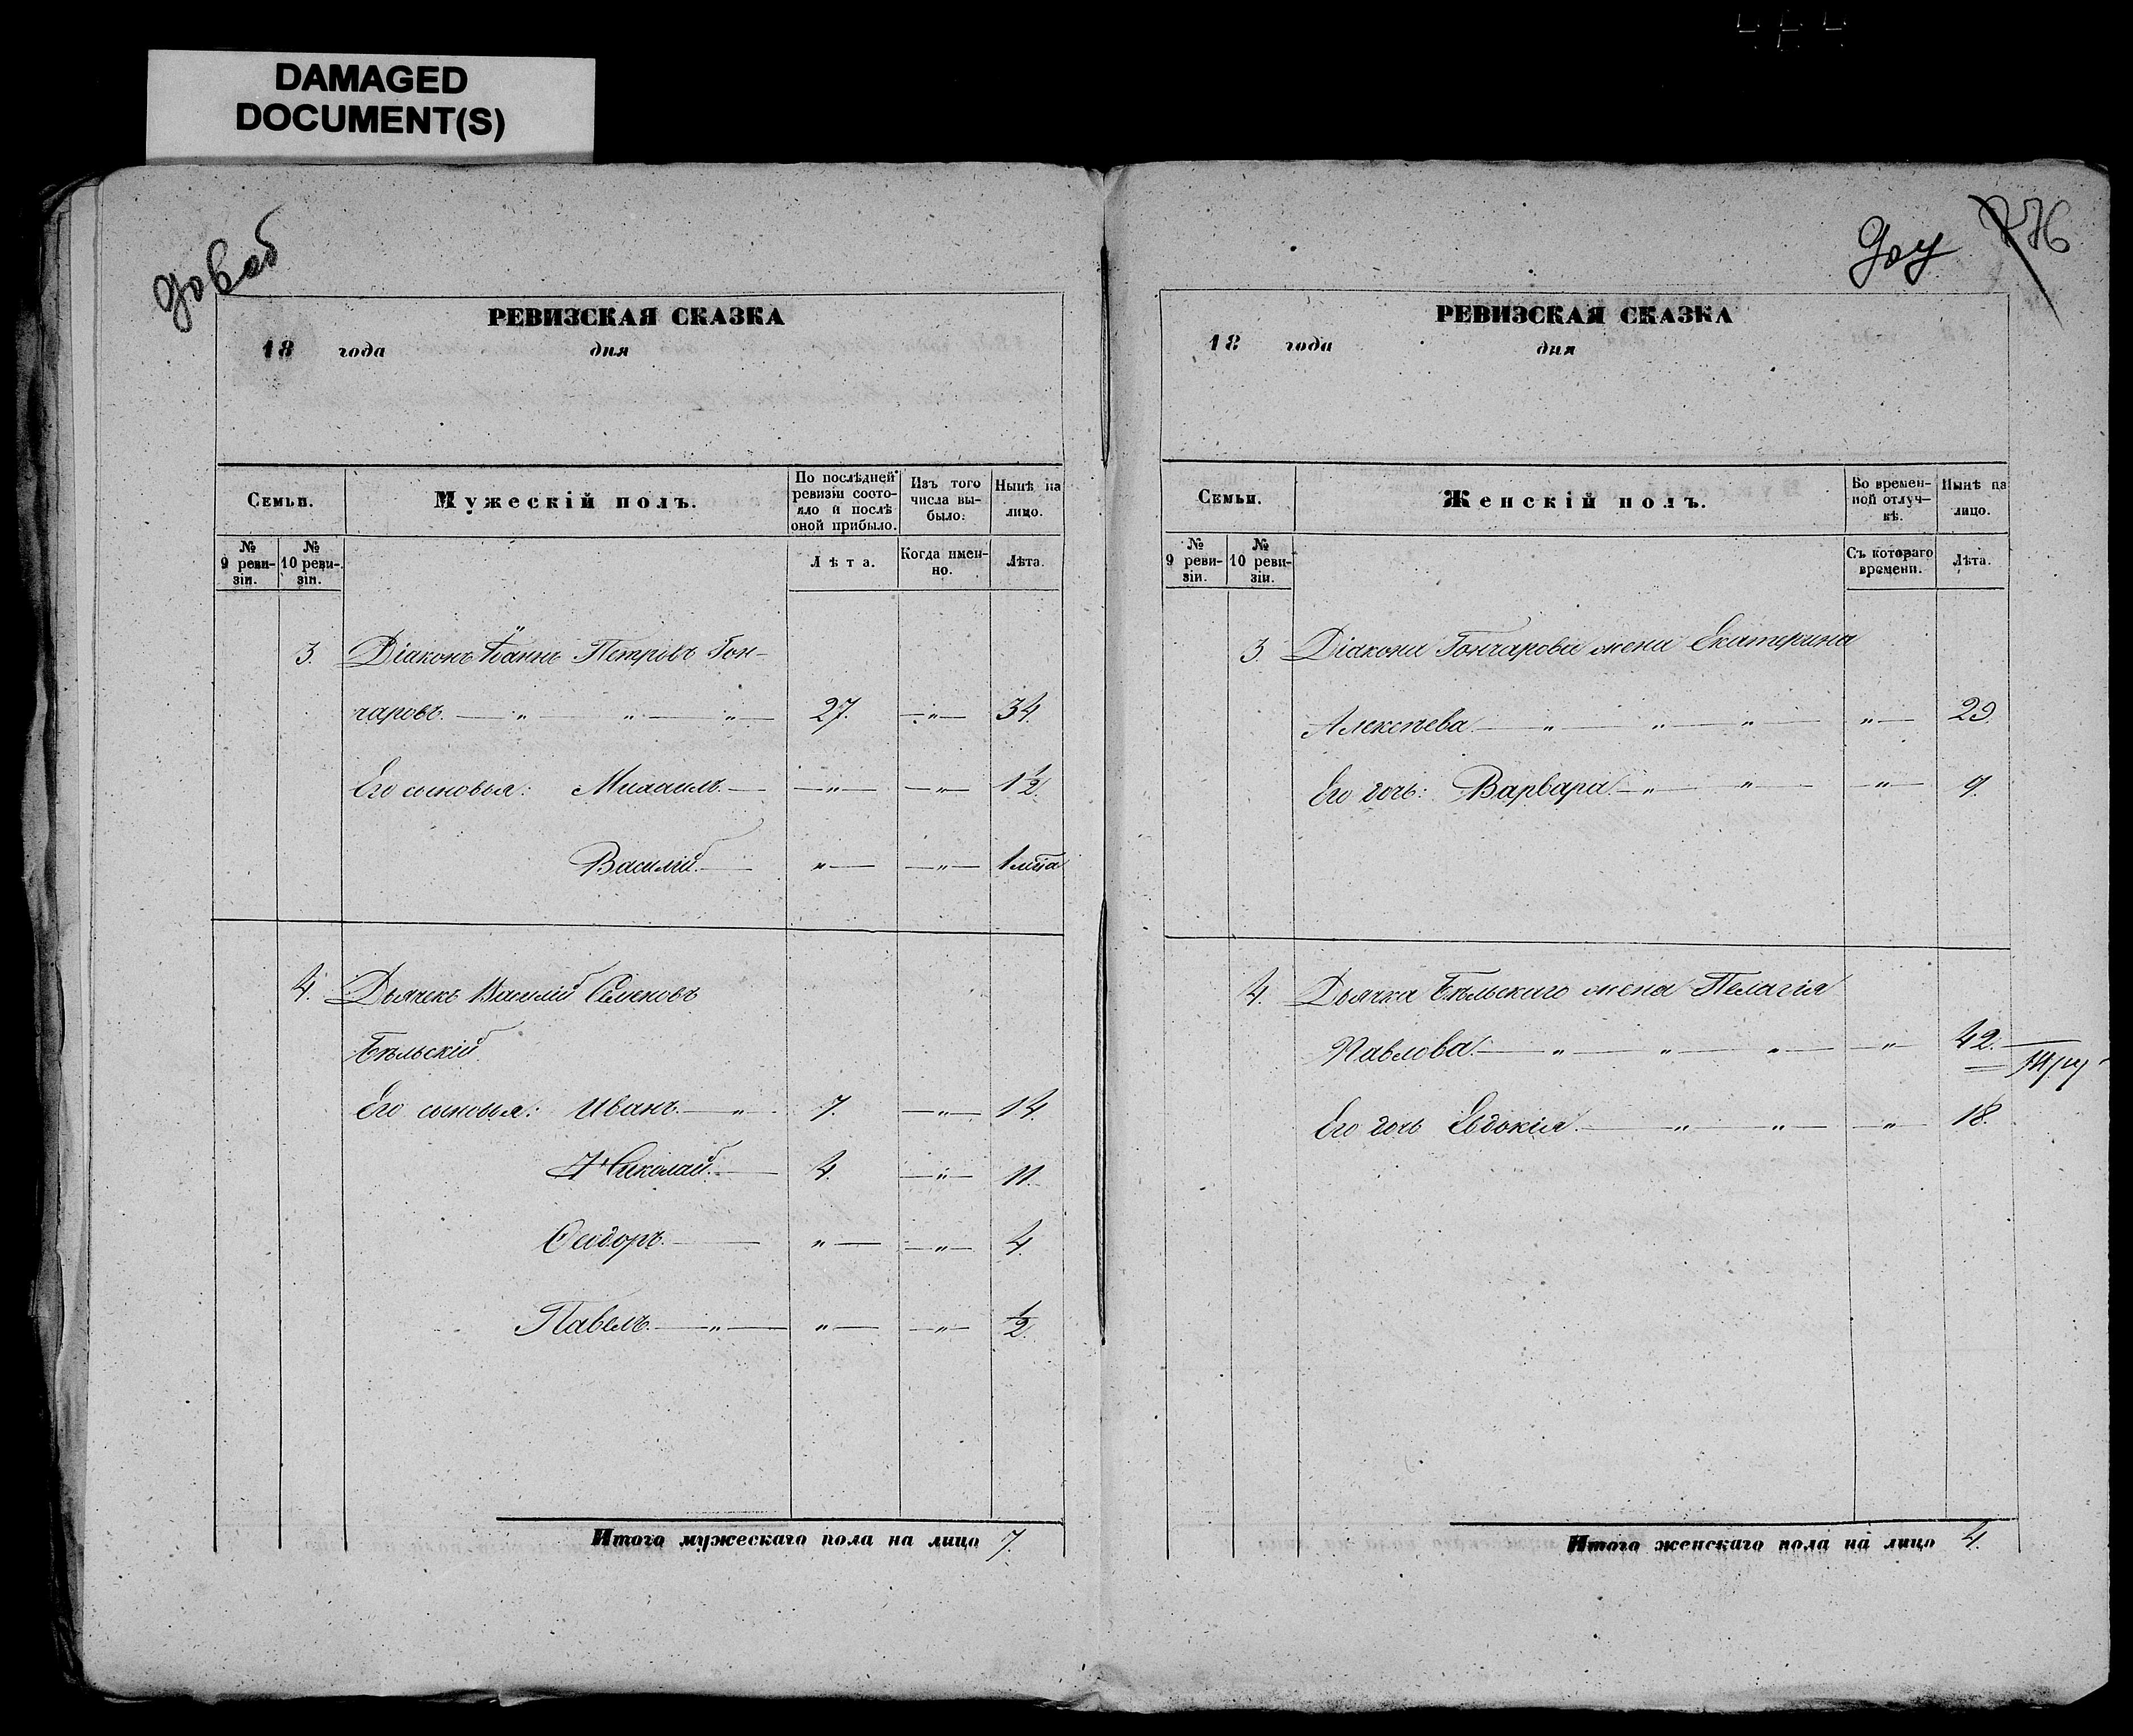 DAMAGED
DOCUMENT(S)
РЕВИЗСКАЯ СКАЗКА
18 года дня
Семьи. Мужескій полъ. По послѣдней ревизіи состояло и послѣ оной прибыло. Изъ того числа выбыло: Нынѣ на лицо.
№ 9 ревизіи. № 10 ревизіи. Лѣта. Когда именно. Лѣта.
3. Діаконъ Іоаннъ Петровъ Гон-
чаровъ. — „ — „ — „ — 27. — „ — 34.
Его сыновья: Михаилъ. — — „ — — „ — 1½.
Василій. — „ — — „ — 1 мѣсяца
4. Дьячекъ Василій Семеновъ
Бѣльскій.
Его сыновья: Иванъ. — „ 7. — „ — 14.
Николай. — 4. — „ — 11.
Сидоръ. — „ — — „ — 4.
Павелъ. — „ — „ — — „ — ½.
Итого мужескаго пола на лицо 7.
776
РЕВИЗСКАЯ СКАЗКА
18 года дня
Семьи. Женскій полъ. Во временной отлучкѣ. Нынѣ на лицо.
№ 9 ревизіи. № 10 ревизіи. Съ котораго времени. Лѣта.
3. Діакона Гончарова жена Екатерина
Алексѣева. — „ — „ — „ — „ — 29.
Его дочь: Варвара. — „ — „ — „ — 9.
4. Дьячка Бѣльскаго жена Пелагія
Павлова. — „ — „ — „ — — „ — 42.
Его дочь Евдокія. — „ — „ — — „ — 18.
Итого женскаго пола на лицо 4.